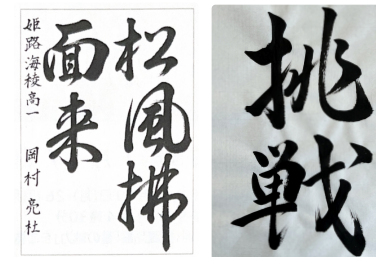 松風拂
面来
姫路海稜高一 岡村亮杜
挑戦